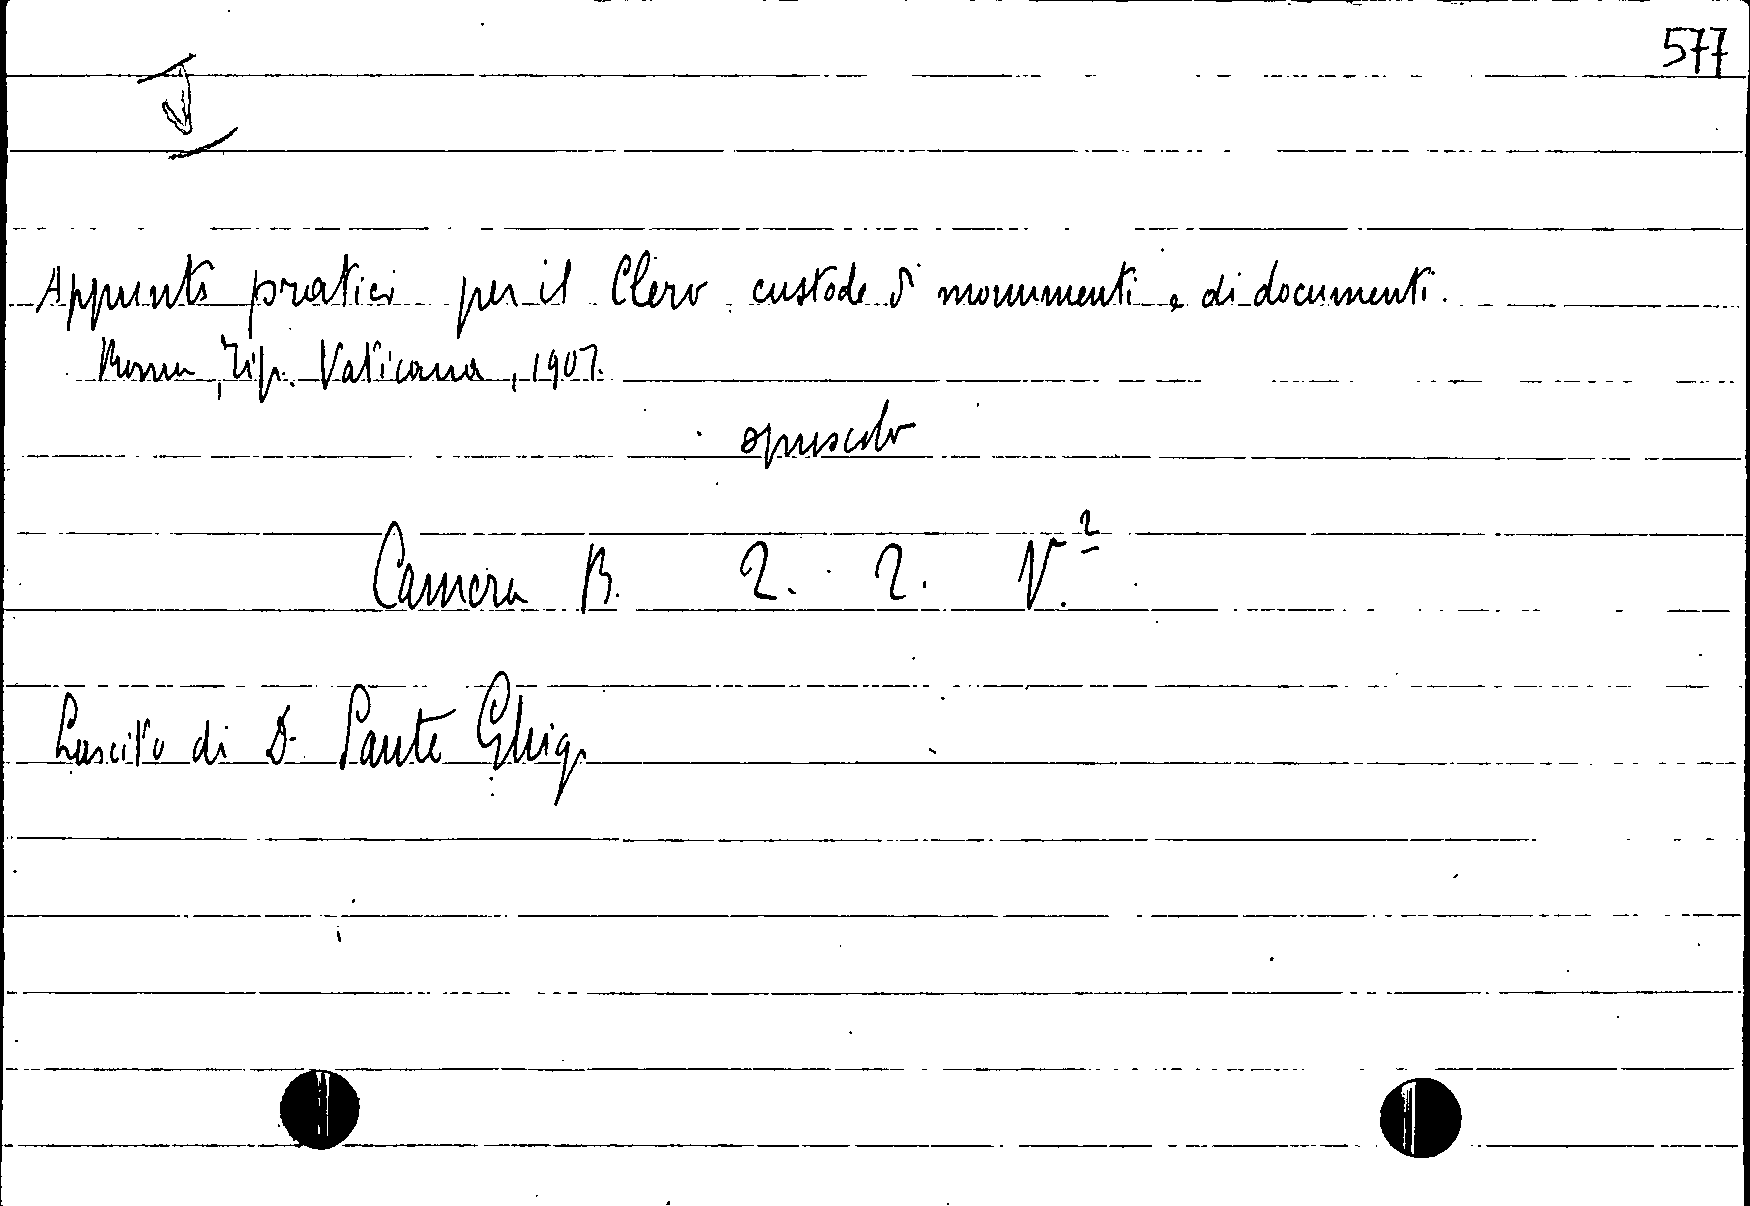 577
Appunti pratici per il Clero custode di monumenti e di documenti.
Roma, Tip. Vaticana, 1907.
opuscolo
Camera B. 2. 2. V.2
Lascito di D. Sante Ghig.